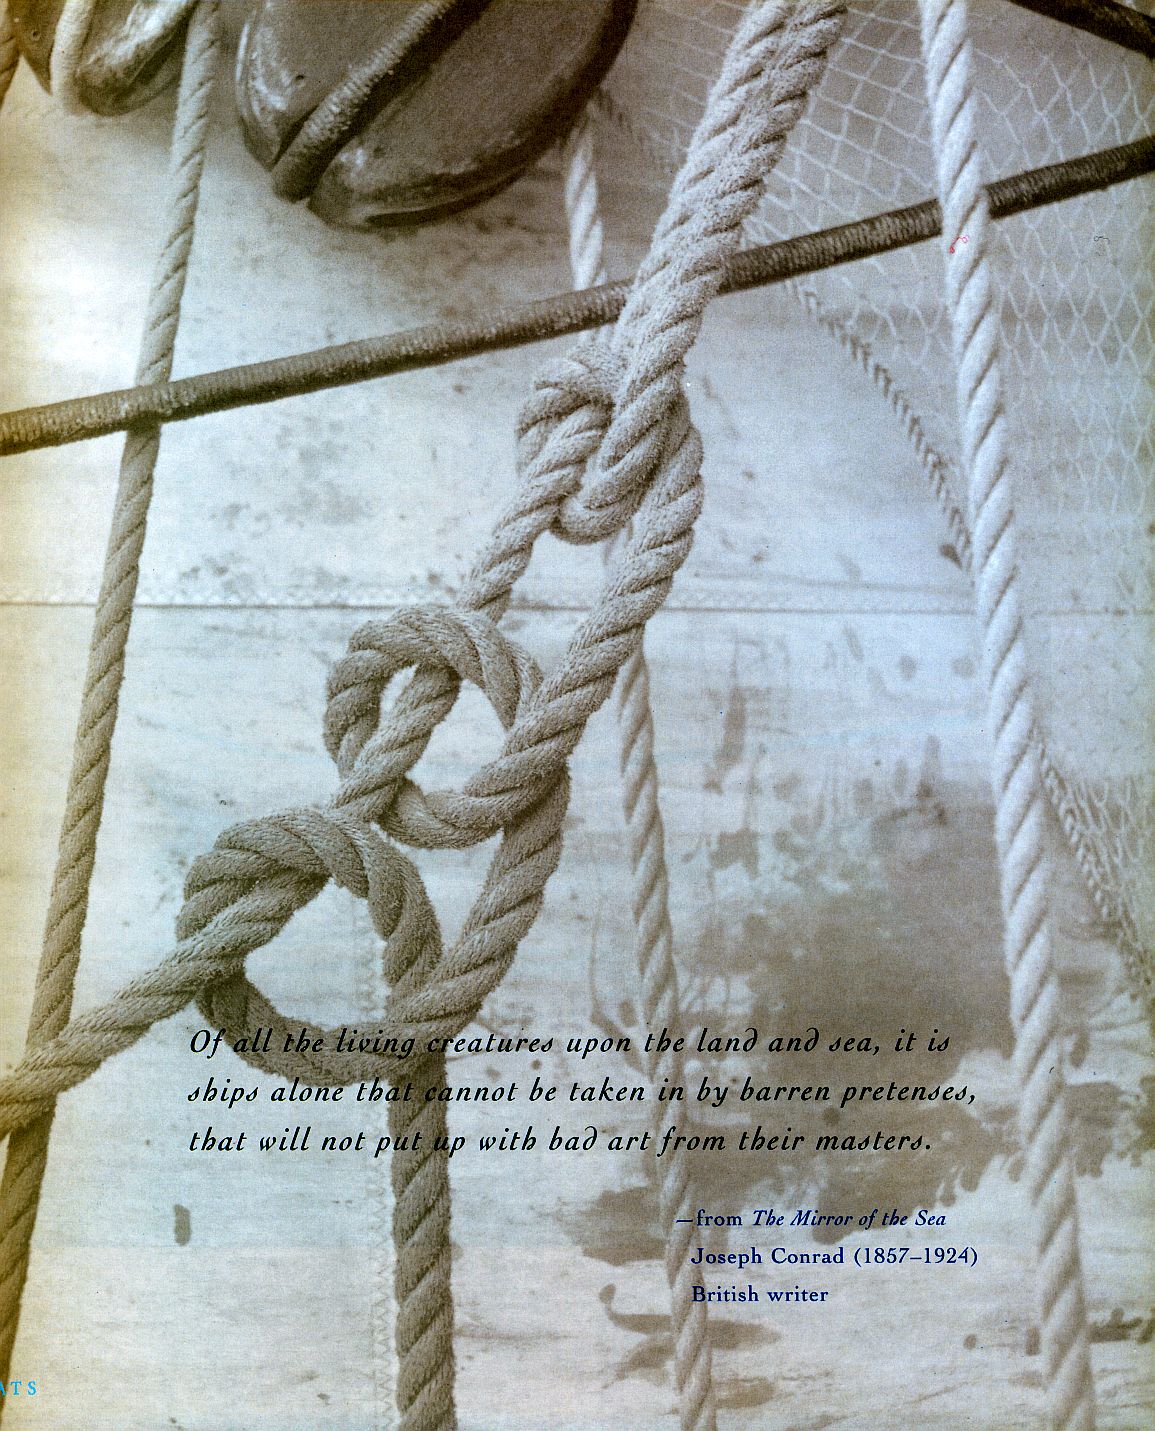 Of all the living creatures upon the land and sea, it is
ships alone that cannot be taken in by barren pretenses,
that will not put up with bad art from their masters.
—from The Mirror of the Sea
Joseph Conrad (1857–1924)
British writer
ATS